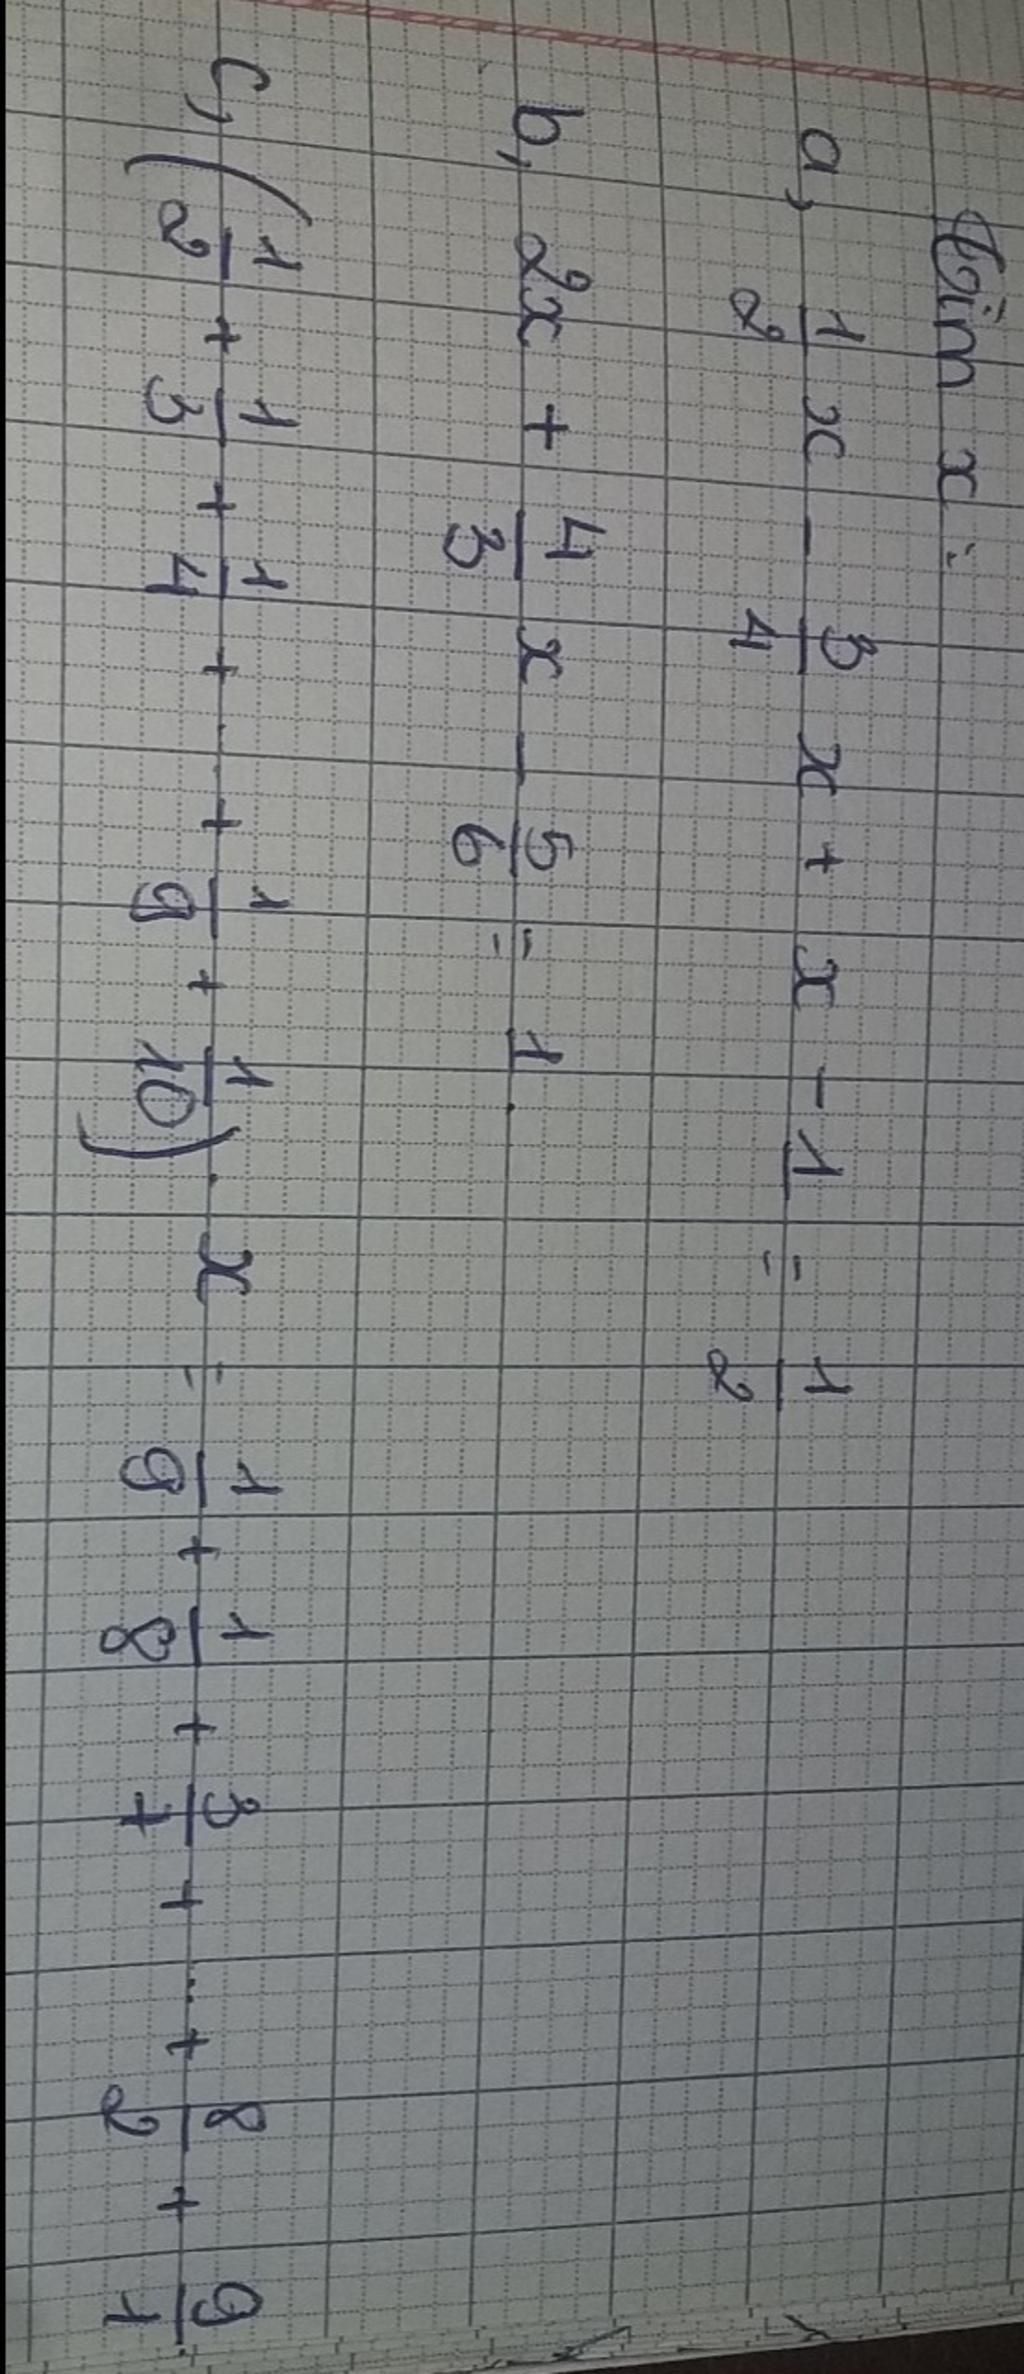 Tìm x :
a, 1/2 x - 3/4 x + x - 1 = 1/2
b, 2x + 4/3 x - 5/6 = 1.
c, (1/2 + 1/3 + 1/4 + ... + 1/9 + 1/10) . x = 1/9 + 1/8 + 3/7 + ... + 8/2 + 9/1